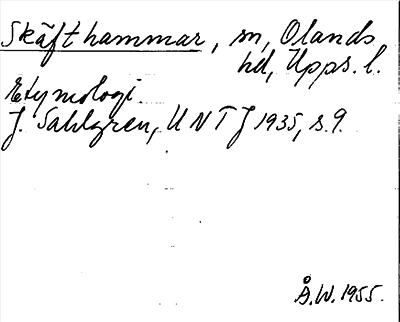 Skäfthammar, sn, Olands
hd, Upps. l.
Etymologi.
J. Sahlgren, UNT J 1935, s. 9.
Å.W. 1955.